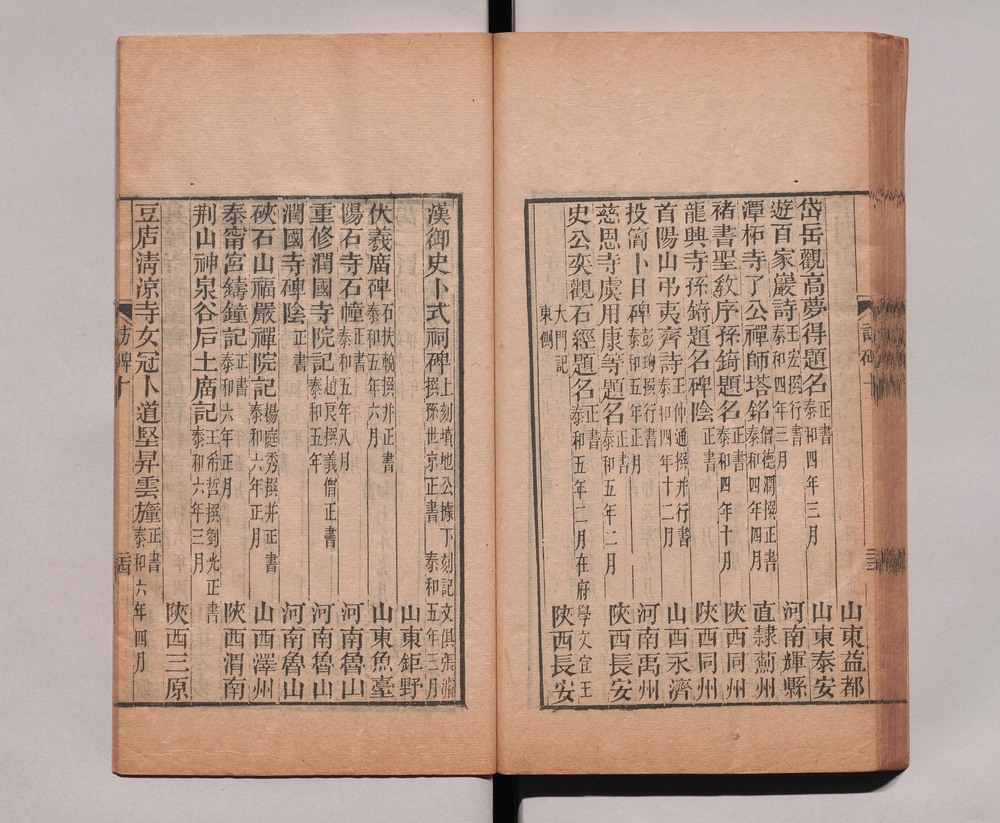 山東益都
岱岳觀高夢得題名 正書 泰和四年三月 山東泰安
遊百家巖詩 王宏撰行書 泰和四年三月 河南輝縣
潭柘寺了公禪師塔銘 僧德潤撰正書 泰和四年四月 直隸薊州
褚書聖教序孫錡題名 正書 泰和四年十月 陝西同州
龍興寺孫錡題名碑陰 正書 陝西同州
首陽山弔夷齊詩 王仲通撰并行書 泰和四年十二月 山西永濟
投簡卜日碑 彭珣撰行書 泰和五年正月 河南禹州
慈恩寺虞用康等題名 正書 泰和五年二月 陝西長安
史公奕觀石經題名 正書 泰和五年二月在府學文宣王
大門記東側 陝西長安
漢御史卜式祠碑 上刻墳地公據下刻記文俱張 撰孫世京正書 泰和五年三月
山東鉅野
伏羲廟碑 石扶 撰并正書 泰和五年六月 山東魚臺
陽石寺石幢 正書 泰和五年八月 河南魯山
重修潤國寺院記 趙艮撰義僧正書 泰和五年 河南魯山
潤國寺碑陰 正書 河南魯山
硤石山福嚴禪院記 楊庭秀撰并正書 泰和六年正月 山西澤州
泰甯宮鑄鐘記 正書 泰和六年正月 陝西渭南
荆山神泉谷后土廟記 王希哲撰劉光正書 泰和六年三月
陝西三原
豆店清涼寺女冠卜道堅昇雲幢 正書 泰和六年四月
訪碑十